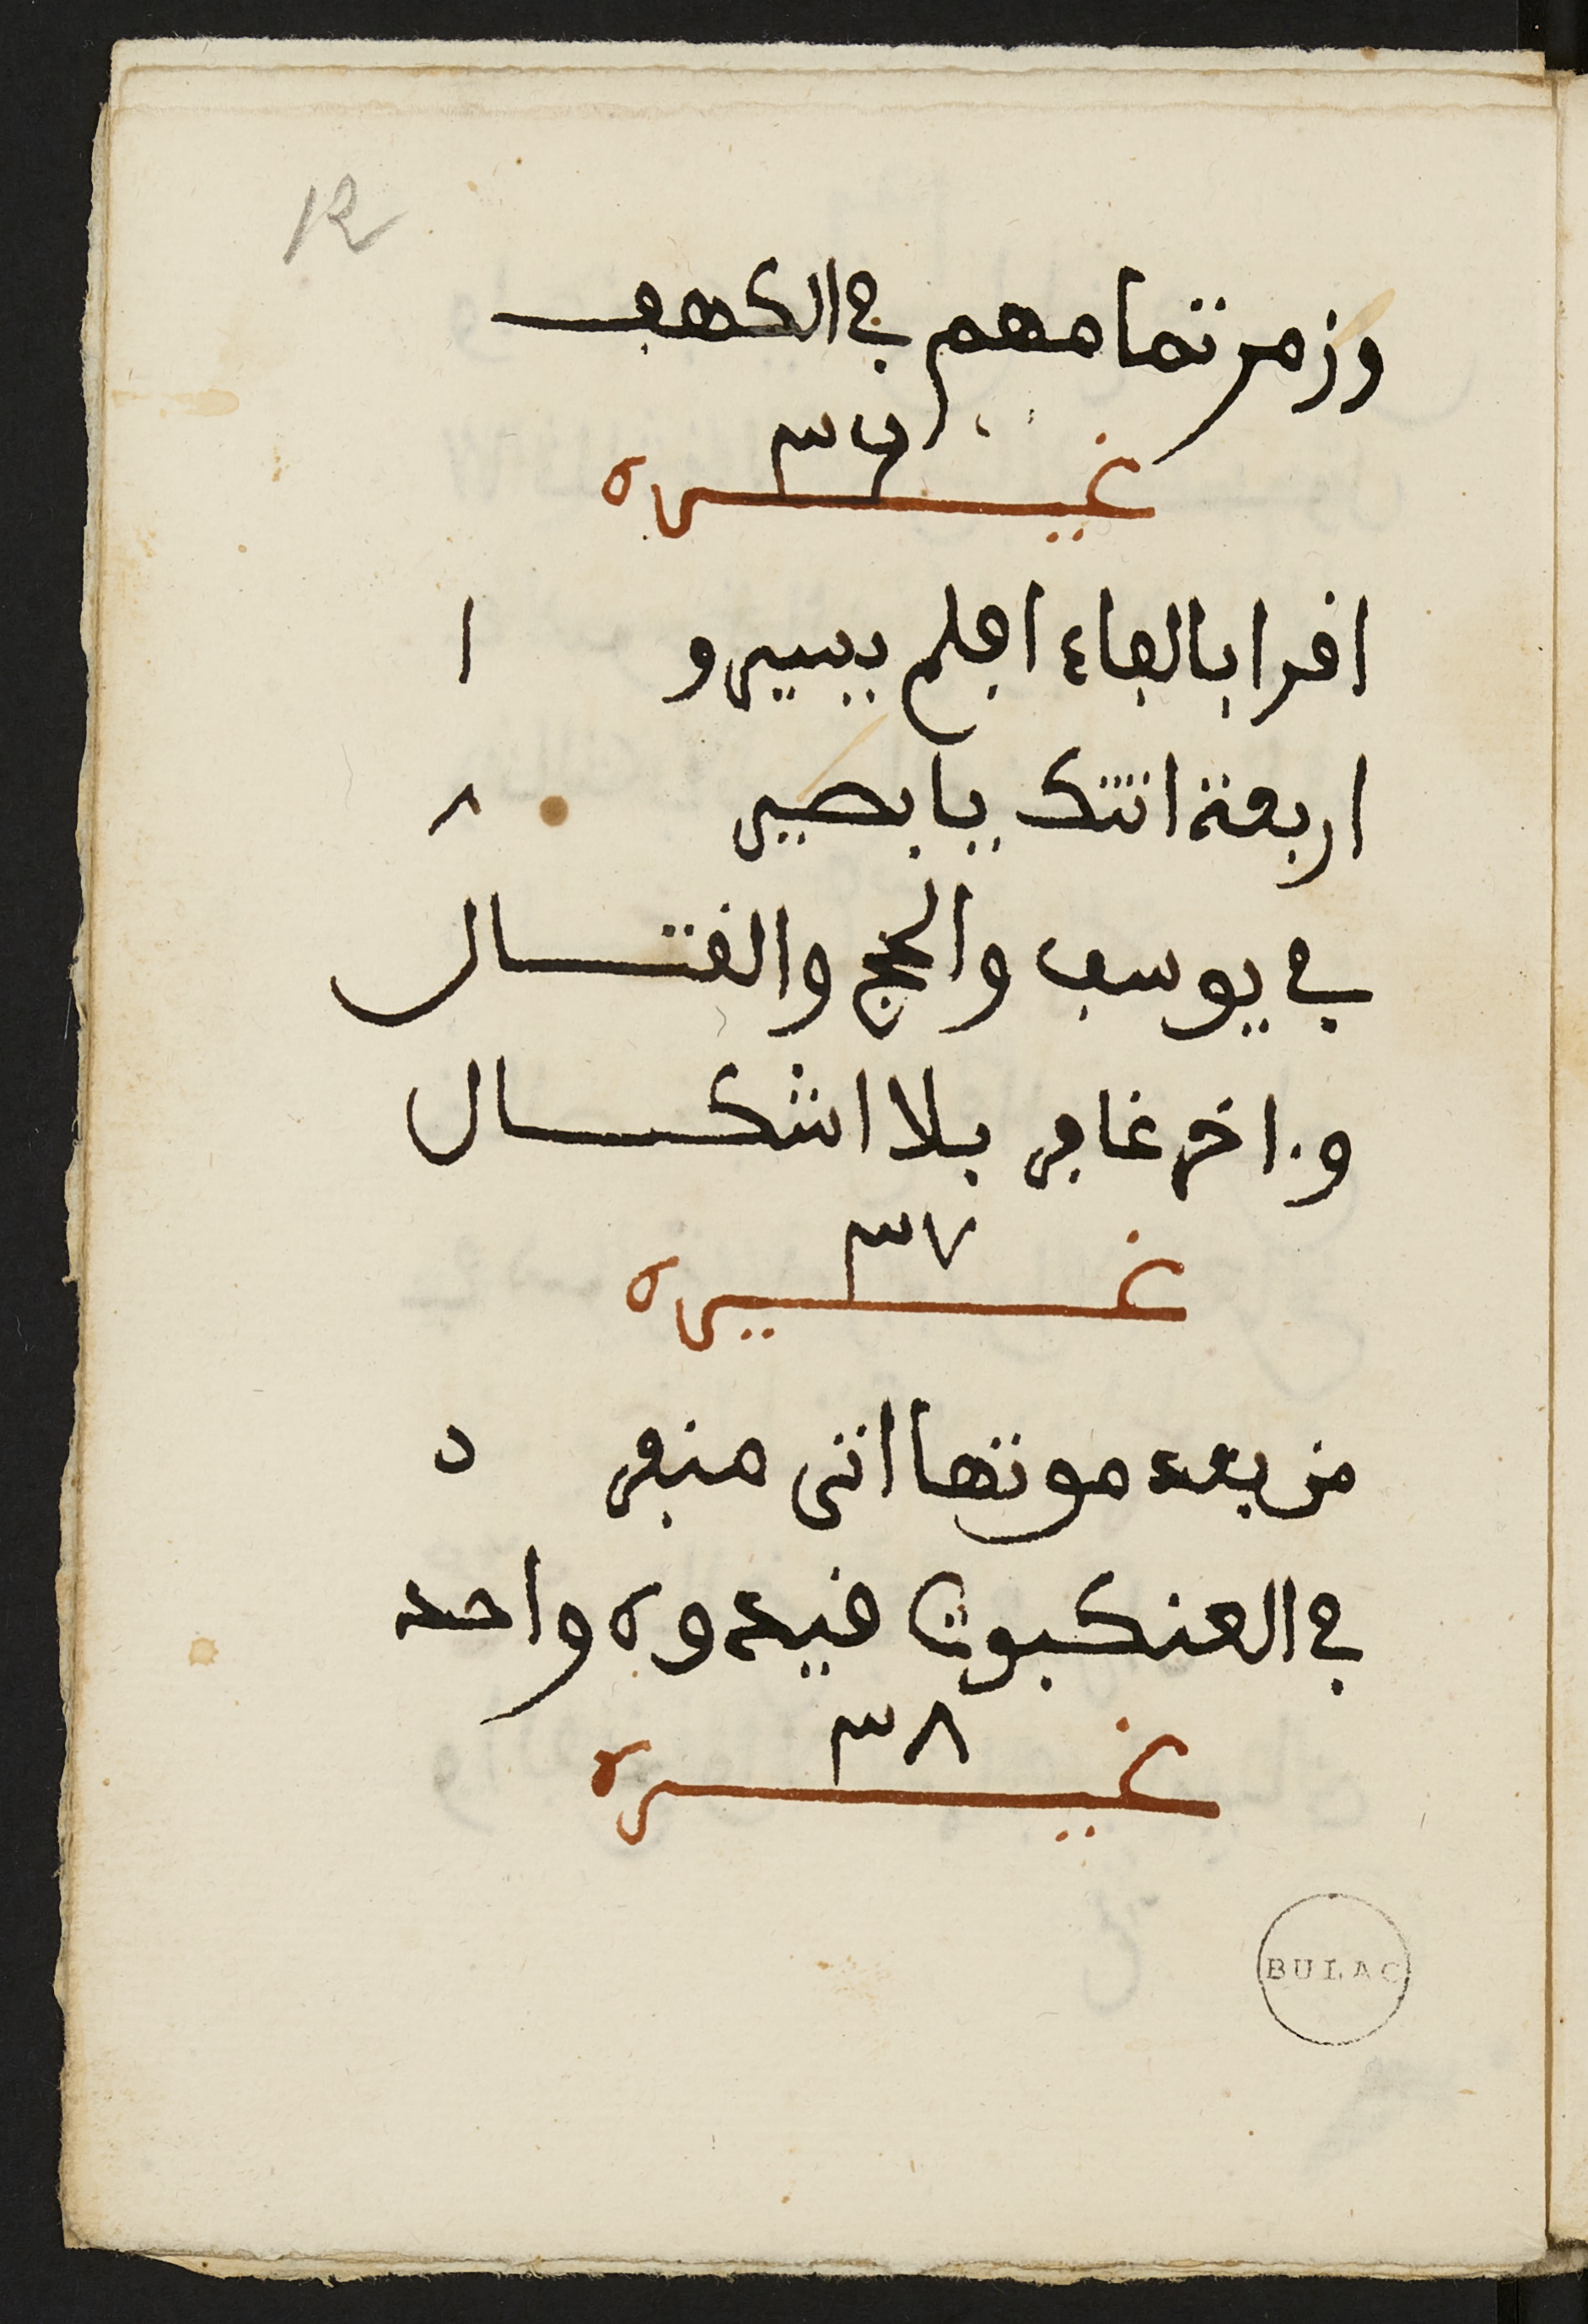 12
وزمر تمامهم في الكهف
٣٦
غيره
اقرا بالفاء افلم يسيرو ا
اربعة اتتك يا بصير ٨
في يوسف والحج والقتال
واخر غافر بلا اشكال
٣٧
غيره
من بعد موتها اتى منفر د
في العنكبوت قيدوه واحد
٣٨
غيره
BULAC